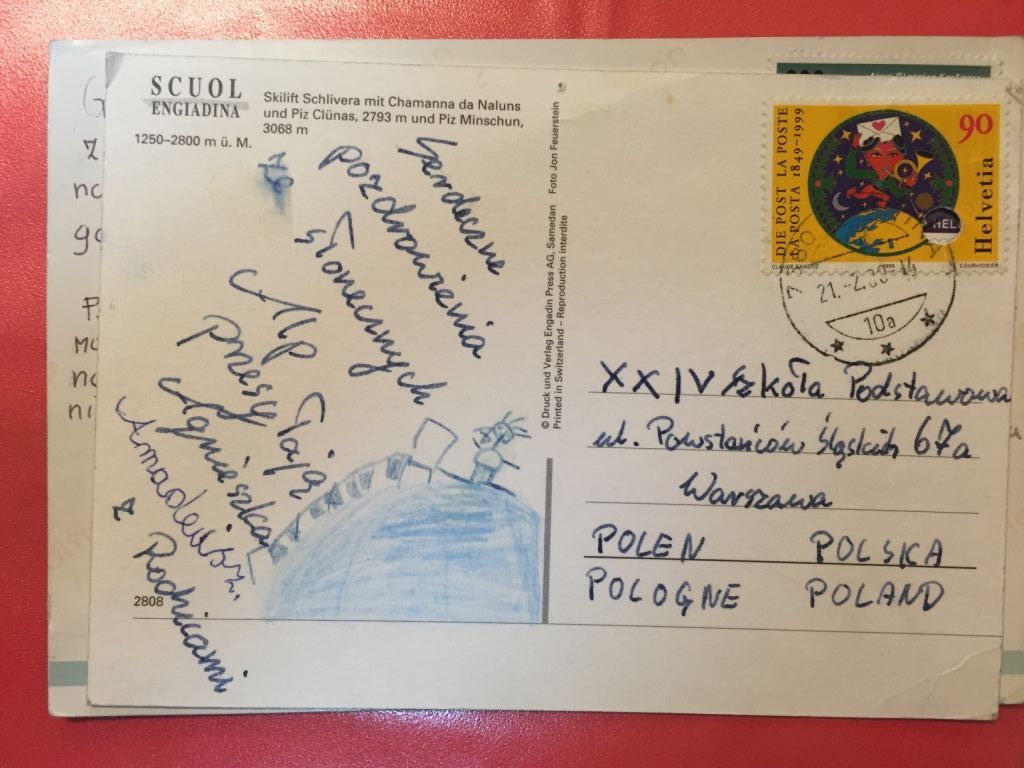 SCUOL
ENGIADINA
1250–2800 m ü. M.
Skilift Schlivera mit Chamanna da Naluns
und Piz Clünas, 2793 m und Piz Minschun,
3068 m
Serdeczne
pozdrowienia
słonecznych
Alp
przesyłają
Agnieszka
z Rodzicami
2808
© Druck und Verlag Engadin Press AG, Samedan Foto Jon Feuerstein
Printed in Switzerland – Reproduction interdite
DIE POST LA POSTE
LA POSTA 1849–1999
90
Helvetia
HEL
CLAUDE SANDOZ 1999 COURVOISIER
21.-2.00-14
10a
XXIV Szkoła Podstawowa
ul. Powstańców Śląskich 67a
Warszawa
POLEN POLSKA
POLOGNE POLAND